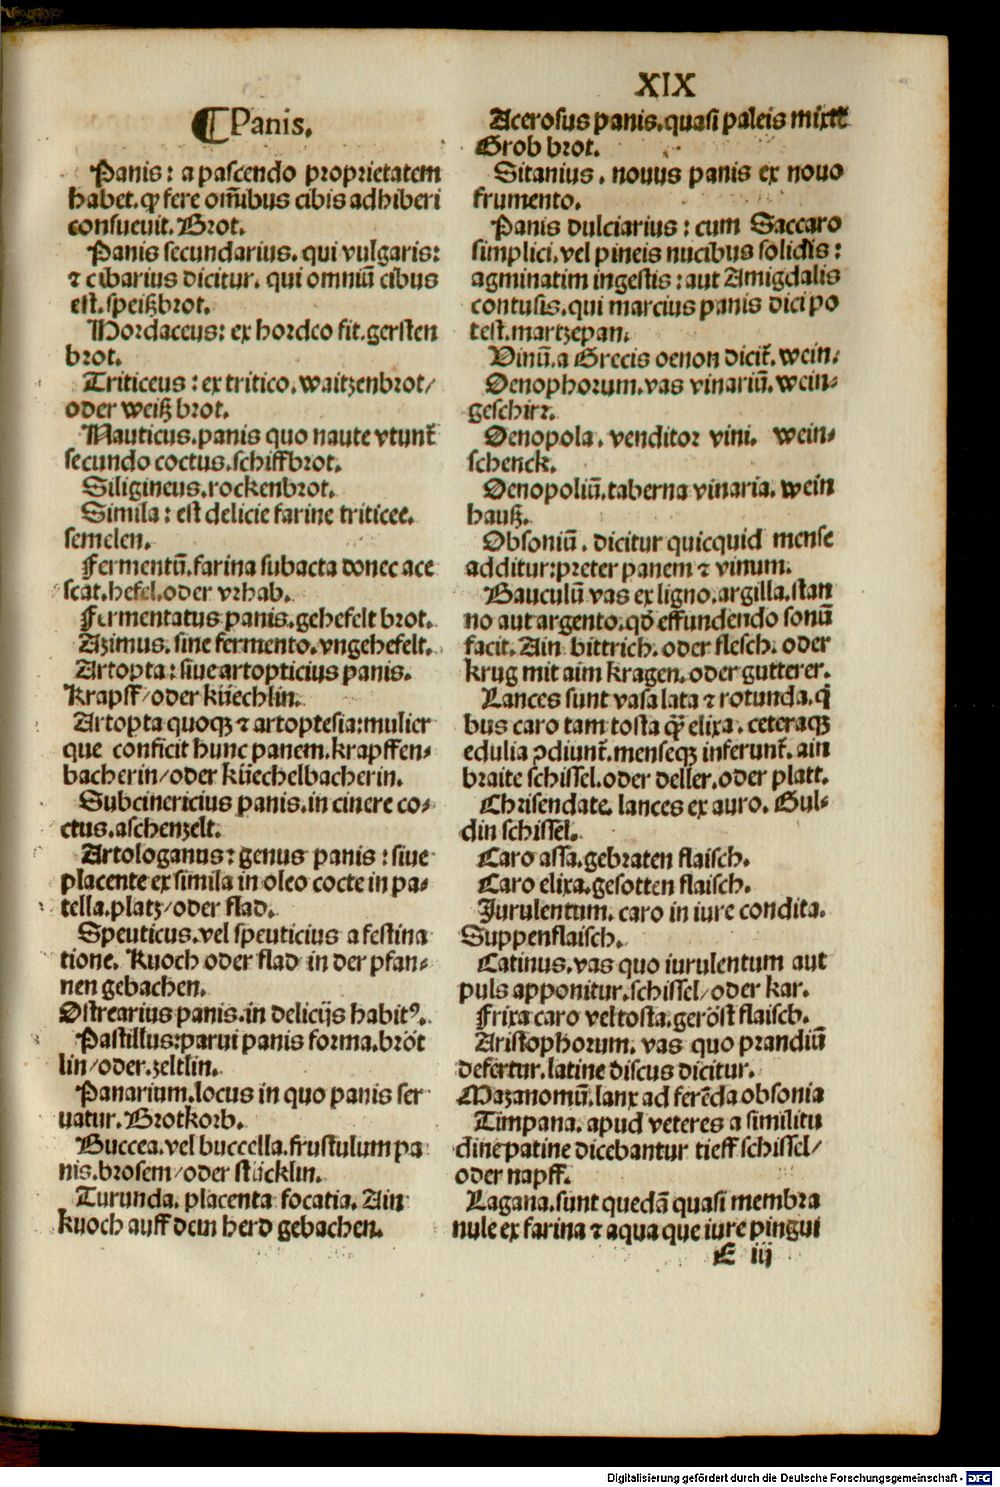 XIX
¶Panis.
Panis: a pascendo proprietatem
habet. ꝙ fere om̄ibus cibis adhiberi
consueuit. Brot.
Panis secundarius. qui vulgaris:
⁊ cibarius dicitur. qui omniū cibus
est. speißbrot.
Hordaceus: ex hordeo fit. gersten
brot.
Triticeus: ex tritico. waitzenbrot/
oder weiß brot.
Nauticus. panis quo naute vtunt᷑
secundo coctus. schiffbrot.
Siligineus. rockenbrot.
Simila: est delicie farine triticee.
semelen.
Fermentū. farina subacta donec ace
scat. hefel. oder vrhab.
Fermentatus panis. gehefelt brot.
Azimus. sine fermento. vngehefelt.
Artopta: siue artopticius panis.
Krapff/oder küechlin.
Artopta quoqꝫ ⁊ artoptesia: mulier
que conficit hunc panem. krapffen⸗
bacherin/oder küechelbacherin.
Subcinericius panis. in cinere co⸗
ctus. aschenzelt.
Artologanus: genus panis: siue
placente ex simila in oleo cocte in pa⸗
tella. platz/oder flad.
Speuticus. vel speuticius a festina
tione. Kuoch oder flad in der pfan⸗
nen gebachen.
Ostrearius panis. in delicijs habitꝰ.
Pastillus: parui panis forma. bröt
lin/oder. zeltlin.
Panarium. locus in quo panis ser
uatur. Brotkorb.
Buccea. vel buccella. frustulum pa
nis. brosem/oder stücklin.
Turunda. placenta focatia. Ain
kuoch auff dem herd gebachen.
Acerosus panis. quasi paleis mixt᷑
Grob brot.
Sitanius. nouus panis ex nouo
frumento.
Panis dulciarius: cum Saccaro
simplici. vel pineis nucibus solidis:
agminatim ingestis: aut Amigdalis
contusis. qui marcius panis dici po
test. martzepan.
Vinū. a Grecis oenon dicit᷑. wein.
Oenophorum. vas vinariū. wein⸗
geschirr.
Oenopola. venditor vini. wein⸗
schenck.
Oenopoliū. taberna vinaria. wein
hauß.
Obsoniū. dicitur quicquid mense
additur: preter panem ⁊ vinum.
Bauculū vas ex ligno. argilla. stan
no aut argento. qḋ effundendo sonū
facit. Ain bittrich. oder flesch. oder
krug mit aim kragen. oder gutterer.
Lances sunt vasa lata ⁊ rotunda. q̇
bus caro tam tosta ꝙ̄ elixa. ceteraqꝫ
edulia ꝯdiunt᷑. menseqꝫ inferunt᷑. ain
braite schissel. oder deller. oder platt.
Chrisendate. lances ex auro. Gul⸗
din schissel.
Caro assa. gebraten flaisch.
Caro elixa. gesotten flaisch.
Jurulentum. caro in iure condita.
Suppenflaisch.
Catinus. vas quo iurulentum aut
puls apponitur. schissel/oder kar.
Frixa caro vel tosta. geröst flaisch.
Aristophorum. vas quo prandiū
defertur. latine discus dicitur.
Mazanomū. lanx ad ferēda obsonia
Timpana. apud veteres a similitu
dine patine dicebantur tieff schissel/
oder napff.
Lagana. sunt quedā quasi membra
nule ex farina ⁊ aqua que iure pingui
E iij
Digitalisierung gefördert durch die Deutsche Forschungsgemeinschaft - DFG